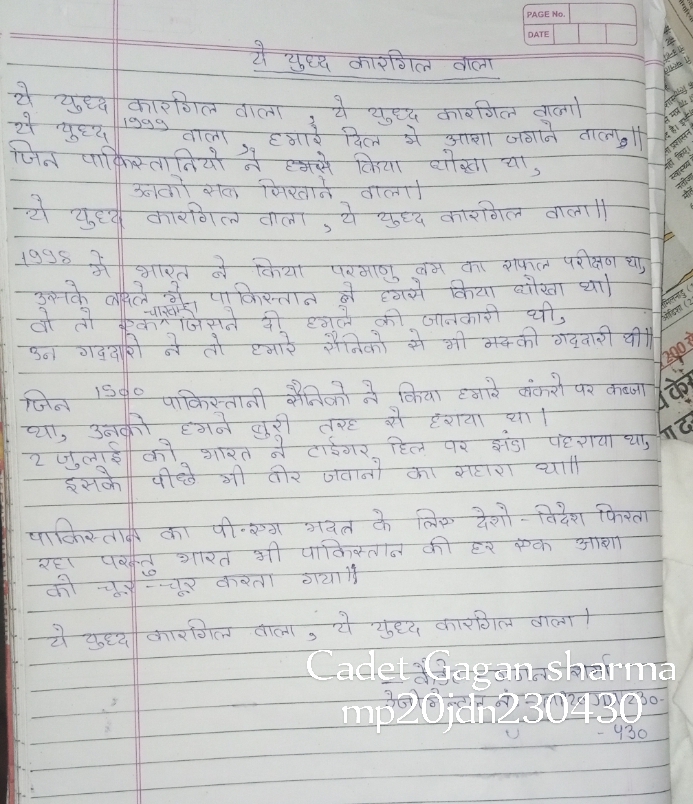 PAGE No.
DATE
ये युद्ध कारगिल वाला
ये युद्ध कारगिल वाला, ये युद्ध कारगिल वाला।
ये युद्ध 1999 वाला, हमारे दिल मे आशा जगाने वाला,॥
जिन पाकिस्तानियों ने हमसे किया धोखा था,
उनको सबक सिखाने वाला।
ये युद्ध कारगिल वाला, ये युद्ध कारगिल वाला॥
1998 में भारत ने किया परमाणु बम का सफल परीक्षण था,
उसके बदले में पाकिस्तान ने हमसे किया धोखा था।
वो तो चरवाहा जिसने दी हमले की जानकारी थी,
उन गद्दारो ने तो हमारे सैनिको से भी मक्की गद्दारी थी॥
जिन 1500 पाकिस्तानी सैनिको ने किया हमारे बंकरो पर कब्जा
था, उनको हमने बुरी तरह से हराया था।
2 जुलाई को भारत ने टाईगर हिल पर झंडा फहराया था,
इसके पीछे भी वीर जवानो का सहारा था॥
पाकिस्तान का पी-एम मदत के लिए देशो-विदेश फिरता
रहा परन्तु भारत भी पाकिस्तान की हर एक आशा
को चूर-चूर करता गया॥
ये युद्ध कारगिल वाला, ये युद्ध कारगिल वाला।
Cadet Gagan sharma
mp20jdn230430
-430